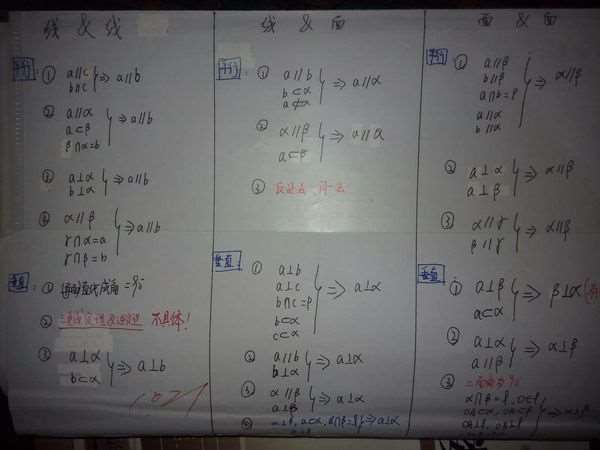 线 & 线
平行: ① a∥c
b∥c ⇒ a∥b
② a∥α
a⊂β
β∩α=b ⇒ a∥b
③ a⊥α
b⊥α ⇒ a∥b
④ α∥β
γ∩α=a
γ∩β=b ⇒ a∥b
垂直: ①
②
不具体!
③ a⊥α
b⊂α ⇒ a⊥b
线 & 面
平行: ① a∥b
b⊂α
a⊄α ⇒ a∥α
② α∥β
a⊂β ⇒ a∥α
③
垂直: ① a⊥b
a⊥c
b∩c=P
b⊂α
c⊂α ⇒ a⊥α
② a∥b
b⊥α ⇒ a⊥α
③ α∥β
a⊥β ⇒ a⊥α
④
面 & 面
平行: ① a∥β
b∥β
a∩b=P
a∥α
b∥α ⇒ α∥β
② a⊥α
a⊥β ⇒ α∥β
③ α∥γ
β∥γ ⇒ α∥β
垂直: ① a⊥β
a⊂α ⇒ β⊥α
② a⊥α
a∥β ⇒ α⊥β
③